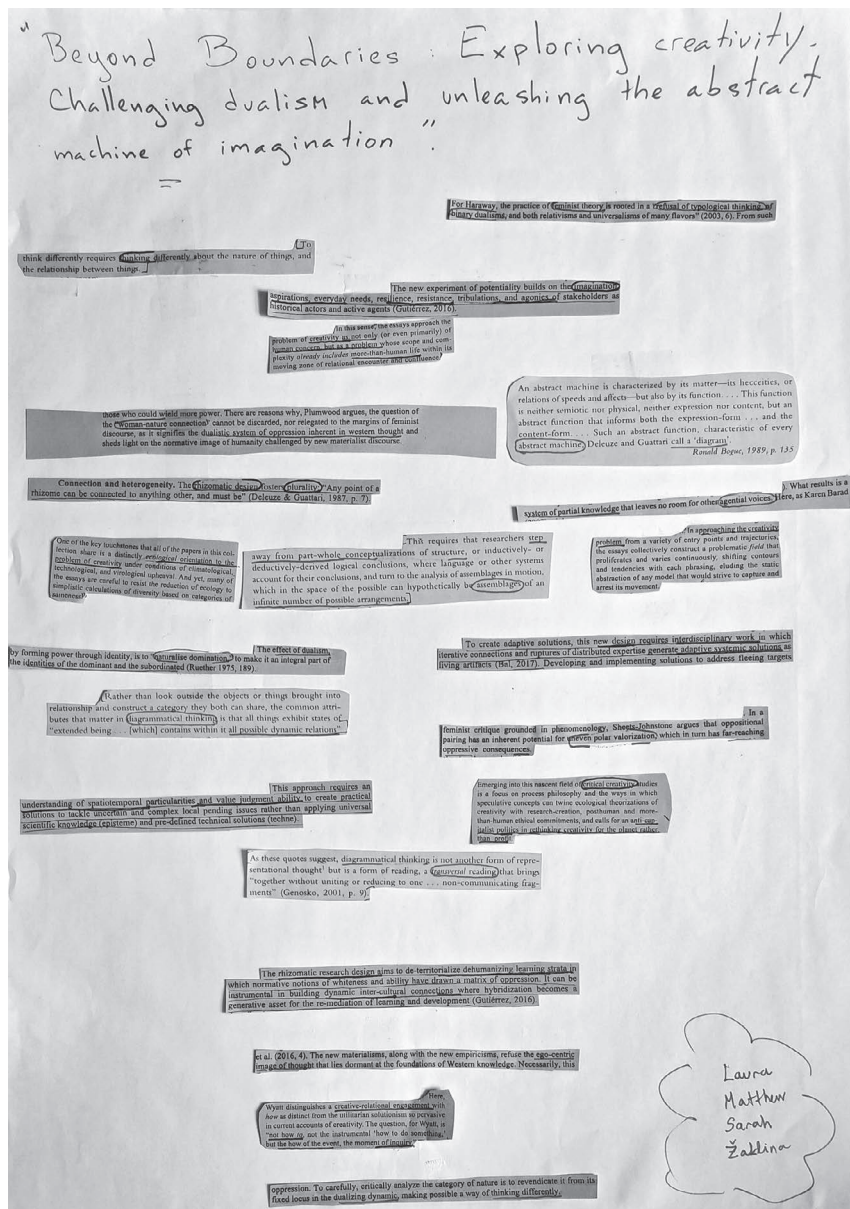 "Beyond Boundaries: Exploring creativity.
Challenging dualism and unleashing the abstract
machine of imagination".
For Haraway, the practice of feminist theory is rooted in a "refusal of typological thinking, of
binary dualisms, and both relativisms and universalisms of many flavors" (2003, 6). From such
To
think differently requires thinking differently about the nature of things, and
the relationship between things.
The new experiment of potentiality builds on the imagination
aspirations, everyday needs, resilience, resistance, tribulations, and agonies of stakeholders as
historical actors and active agents (Gutiérrez, 2016).
In this sense, the essays approach the
problem of creativity as not only (or even primarily) of
human concern, but as a problem whose scope and com-
plexity already includes more-than-human life within its
moving zone of relational encounter and confluence
those who could wield more power. There are reasons why, Plumwood argues, the question of
the 'woman-nature connection' cannot be discarded, nor relegated to the margins of feminist
discourse, as it signifies the dualistic system of oppression inherent in western thought and
sheds light on the normative image of humanity challenged by new materialist discourse.
An abstract machine is characterized by its matter—its hecceities, or
relations of speeds and affects—but also by its function . . . . This function
is neither semiotic nor physical, neither expression nor content, but an
abstract function that informs both the expression-form . . . and the
content-form. . . . Such an abstract function, characteristic of every
abstract machine, Deleuze and Guattari call a 'diagram'.
Ronald Bogue, 1989, p. 135
Connection and heterogeneity. The rhizomatic design fosters plurality: "Any point of a
rhizome can be connected to anything other, and must be" (Deleuze & Guattari, 1987, p. 7).
). What results is a
system of partial knowledge that leaves no room for other agential voices. Here, as Karen Barad
One of the key touchstones that all of the papers in this col-
lection share is a distinctly ecological orientation to the
problem of creativity under conditions of climatological,
technological, and virological upheaval. And yet, many of
the essays are careful to resist the reduction of ecology to
simplistic calculations of diversity based on categories of
sameness?
This requires that researchers step
away from part-whole conceptualizations of structure, or inductively- or
deductively-derived logical conclusions, where language or other systems
account for their conclusions, and turn to the analysis of assemblages in motion,
which in the space of the possible can hypothetically be assemblages of an
infinite number of possible arrangements.
In approaching the creativity
problem from a variety of entry points and trajectories,
the essays collectively construct a problematic field that
proliferates and varies continuously, shifting contours
and tendencies with each phrasing, eluding the static
abstraction of any model that would strive to capture and
arrest its movement.
The effect of dualism,
by forming power through identity, is to "naturalise domination," to make it an integral part of
the identities of the dominant and the subordinated (Ruether 1975, 189).
To create adaptive solutions, this new design requires interdisciplinary work in which
iterative connections and ruptures of distributed expertise generate adaptive systemic solutions as
living artifacts (Bal, 2017). Developing and implementing solutions to address fleeing targets
Rather than look outside the objects or things brought into
relationship and construct a category they both can share, the common attri-
butes that matter in diagrammatical thinking is that all things exhibit states of
"extended being . . . [which] contains within it all possible dynamic relations"
In a
feminist critique grounded in phenomenology, Sheets-Johnstone argues that oppositional
pairing has an inherent potential for uneven polar valorization, which in turn has far-reaching
oppressive consequences.
This approach requires an
understanding of spatiotemporal particularities and value judgment ability to create practical
solutions to tackle uncertain and complex local pending issues rather than applying universal
scientific knowledge (episteme) and pre-defined technical solutions (techne).
Emerging into this nascent field of critical creativity studies
is a focus on process philosophy and the ways in which
speculative concepts can twine ecological theorizations of
creativity with research-creation, posthuman and more-
than-human ethical commitments, and calls for an anti-cap-
italist politics in rethinking creativity for the planet rather
than profit
As these quotes suggest, diagrammatical thinking is not another form of repre-
sentational thought but is a form of reading, a transversal reading that brings
"together without uniting or reducing to one . . . non-communicating frag-
ments" (Genosko, 2001, p. 9).
The rhizomatic research design aims to de-territorialize dehumanizing learning strata in
which normative notions of whiteness and ability have drawn a matrix of oppression. It can be
instrumental in building dynamic inter-cultural connections where hybridization becomes a
generative asset for the re-mediation of learning and development (Gutiérrez, 2016).
et al. (2016, 4). The new materialisms, along with the new empiricisms, refuse the ego-centric
image of thought that lies dormant at the foundations of Western knowledge. Necessarily, this
Here,
Wyatt distinguishes a creative-relational engagement with
how as distinct from the utilitarian solutionism so pervasive
in current accounts of creativity. The question, for Wyatt, is
"not how to, not the instrumental 'how to do something,'
but the how of the event, the moment of inquiry
oppression. To carefully, critically analyze the category of nature is to revendicate it from its
fixed locus in the dualizing dynamic, making possible a way of thinking differently.
Laura
Matthew
Sarah
Žaklina